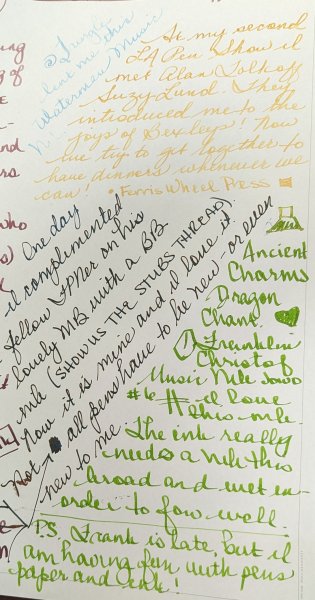 Jungle
lent me this
Waterman Music
At my second
LA Pen Show I
met Alan Tolhoff
Suzy Lund. They
introduced me to the
joys of Sexleys! Now
we try to get together to
have dinners whenever we
can! • Ferris Wheel Press
One day
I complimented
fellow FPNer on his
lovely MB with a BB
nib (SHOW US THE STUBS THREAD).
Now it is mine and I love it
Not all pens have to be new - or even
new to me
Ancient
Charms
Dragon
Chant
Franklin
Christof
Music Nib Jowo
#6 I love
this nib.
The ink really
needs a nib this
broad and wet in
order to fow well.
P.S. Frank is late, but I
am having fun with pens
paper and ink!